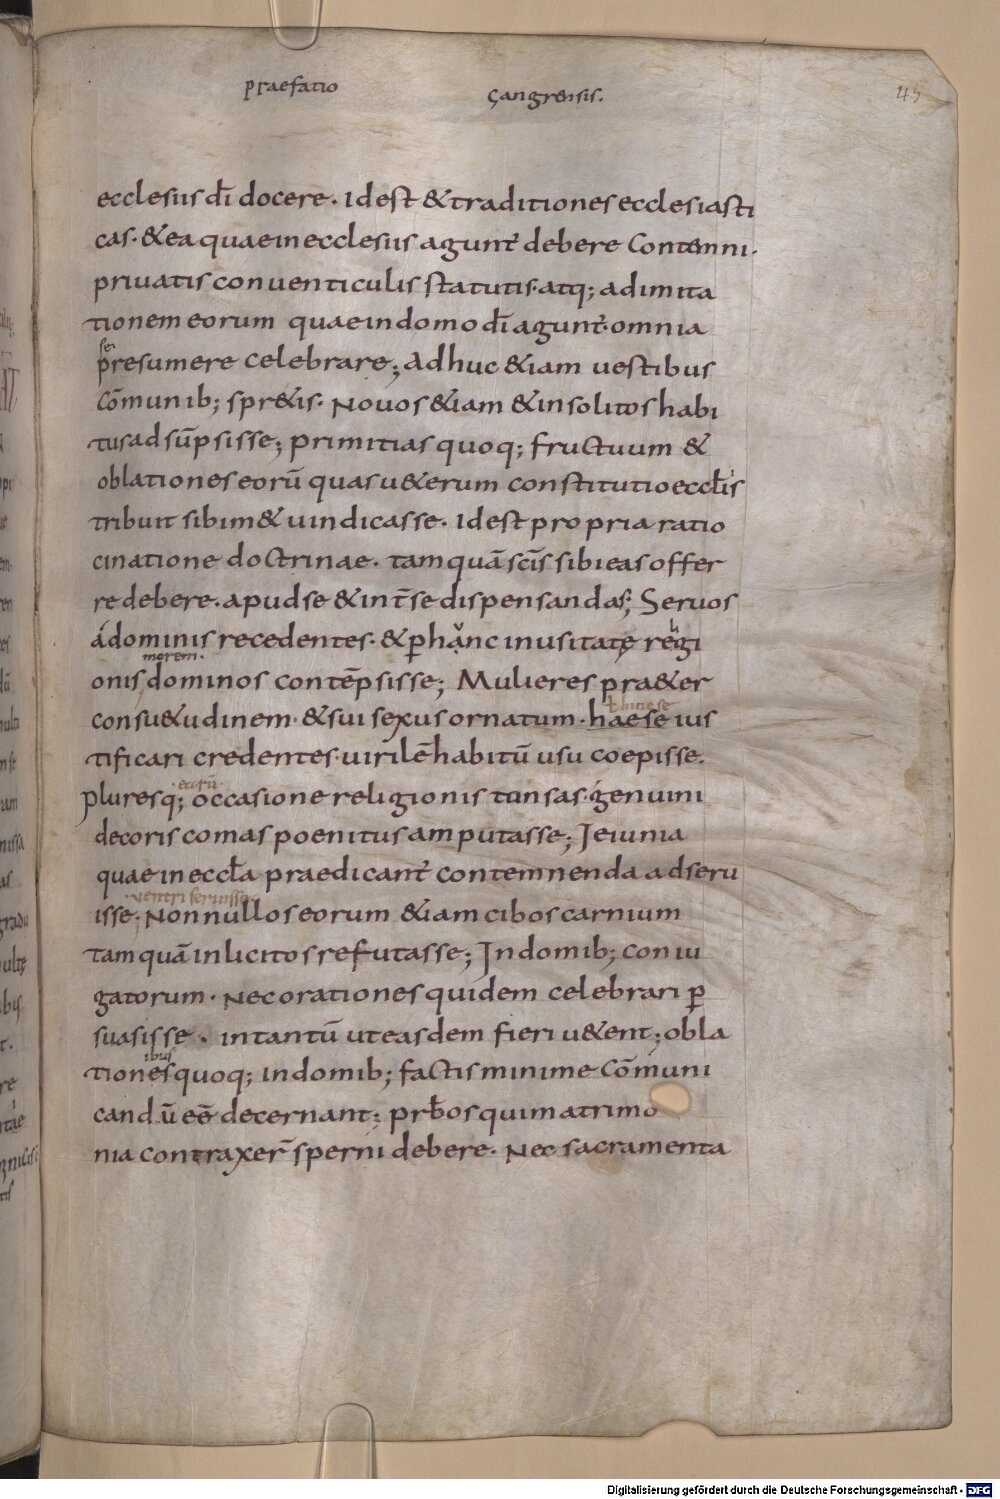 praefatio gangrensis.
45
ecclesiis dī docere. Idest & traditiones ecclesiasti
cas. & ea quae in ecclesiis agunt̄ debere contemni.
priuatis conuenticulis statutis. atq; ad imita
tionem eorum quae in domo dī agunt̄. omnia
se
presumere celebrare; Adhuc &iam uestibus
cōmunib; spr&is. Nouos &iam & insolitos habi
tus adsūpsisse; primitias quoq; fructuum &
oblationes eorū quas u&erum constitutio eccłis
tribuit sibim& uindicasse. Idest propria ratio
cinatione doctrinae. tamquā scīs sibi eas offer
re debere. apud se & int̄ se dispensandas; Seruos
a dominis recedentes. & ꝑ hanc inusitatę regi
li
morem.
onis dominos contēpsisse; Mulieres pra&er
consu&udinem. & sui sexus ornatum. hae se ius
tificari credentes. uirilē habitū usu coepisse.
earū
pluresq; occasione religionis tonsas. genuini
decoris comas poenitus amputasse; Ieiunia
quae in eccła praedicant̄ contemnenda adseru
ventri seruisse
isse; Nonnullos eorum &iam cibos carnium
tamquā inlicitos refutasse; In domib; coniu
gatorum. Nec orationes quidem celebrari ꝑ
suasisse. in tantū ut easdem fieri u&ent; obla
ibus
tiones quoq; in domib; factis minime cōmuni
candū eē decernant; prƀos qui matrimo
nia contraxer̄ sperni debere. Nec sacramenta
Digitalisierung gefördert durch die Deutsche Forschungsgemeinschaft - DFG